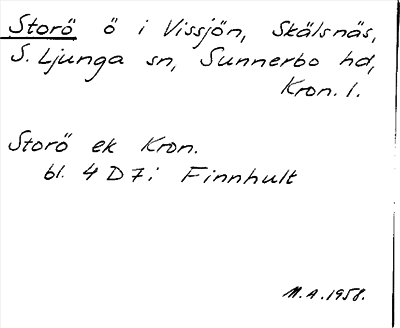 Storö ö i Vissjön, Skälsnäs,
S. Ljunga sn, Sunnerbo hd,
Kron. l.
Storö ek Kron.
bl. 4 D 7i Finnhult
M.A. 1958.